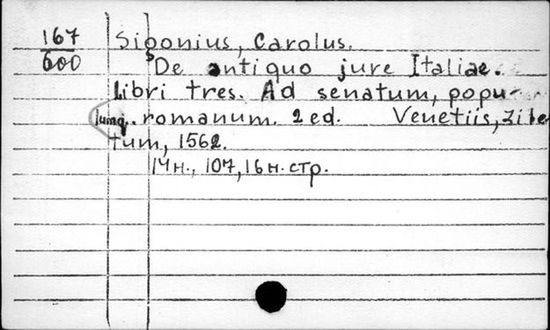 167 Sigonius, Carolus.
600 De antiquo jure Italiae.
Libri tres. Ad senatum, popu-
lumq. romanum. 2 ed. Venetiis, Zile
tum, 1562.
14н., 107, 16н. стр.